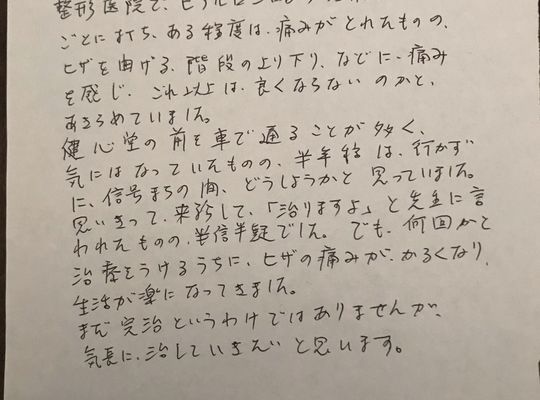 整形医院で、ヒアルロン
ごとに打ち、ある程度は、痛みがとれたものの、
ヒザを曲げる、階段の上り下り、などに、痛み
を感じ、これ以上は、良くならないのかと、
あきらめていました。
健心堂の前を車で通ることが多く、
気にはなっていたものの、半年程は、行かず
に、信号まちの間、どうしようかと思っていました。
思いきって、来診して、「治りますよ」と先生に言
われたものの、半信半疑でした。でも、何回かと
治療をうけるうちに、ヒザの痛みが、かるくなり、
生活が楽になってきました。
まだ完治というわけではありませんが、
気長に、治していきたいと思います。